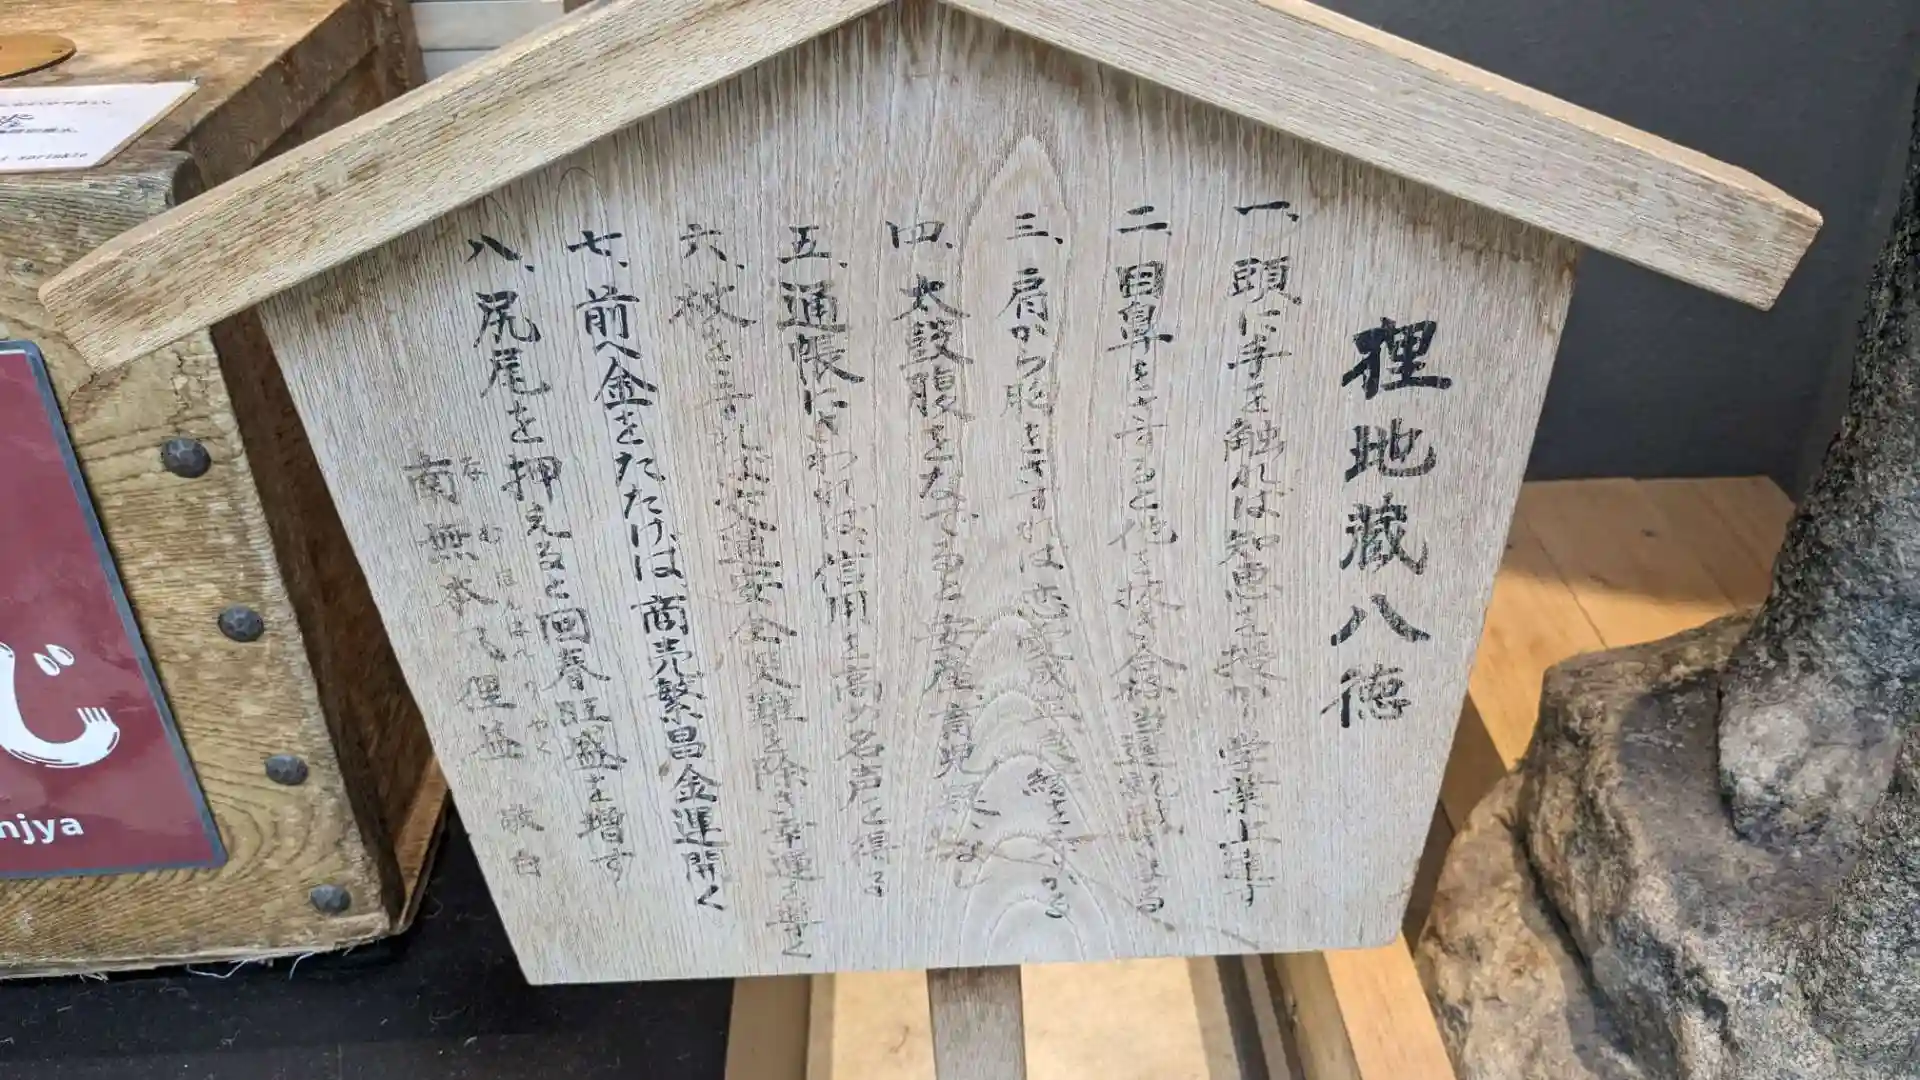 狸地蔵八徳
一、頭に手を触れば知恵を授かり学業上達す
二、目鼻をさすると他を抜き合格当選就職する
三、肩から胸をさすれば恋愛成 縁を
四、太鼓腹をなでると安産、育児 なし
五、通帳にさわれば信用を高め名声を得る
六、杖をさすれば交通安全災難を除き幸運を導く
七、前へ金をたたけば商売繁昌金運開く
八、尻尾を押えると回春旺盛を増す
南無 狸益 敬白
なむ ぽんぽん りやく
じ
njya
sprinkle